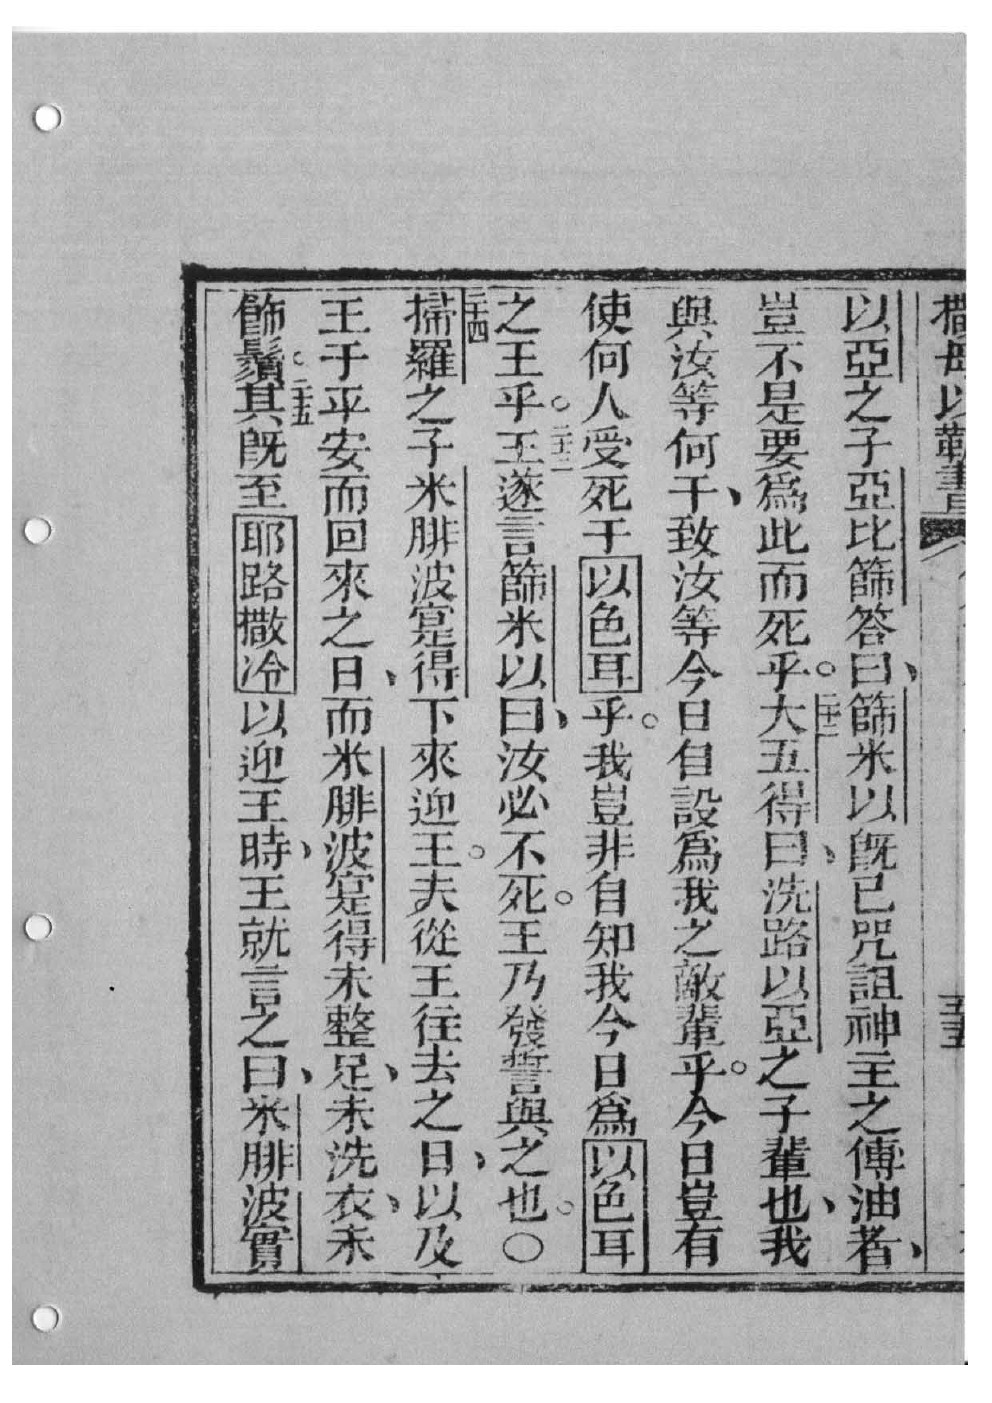 撒母以勒書
五
以亞之子亞比篩答曰、篩米以既已咒詛神主之傅油者、
豈不是要爲此而死乎。二十二大五得曰、洗路以亞之子輩也、我
與汝等何干、致汝等今日自設爲我之敵輩乎。今日豈有
使何人受死于以色耳乎。我豈非自知我今日爲以色耳
之王乎。二十三王遂言篩米以曰、汝必不死。王乃發誓與之也。○
二十四掃羅之子米腓波寔得下來迎王。夫從王往去之日、以及
王于平安而回來之日、而米腓波寔得未整足、未洗衣、未
飾鬚。二十五其既至耶路撒冷以迎王時、王就言之曰、米腓波實